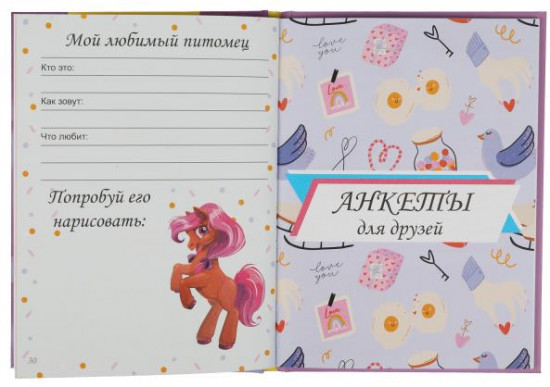 Мой любимый питомец
Кто это:
Как зовут:
Что любит:
Попробуй его
нарисовать:
30
love
you
Love
АНКЕТЫ
для друзей
love
you
Love